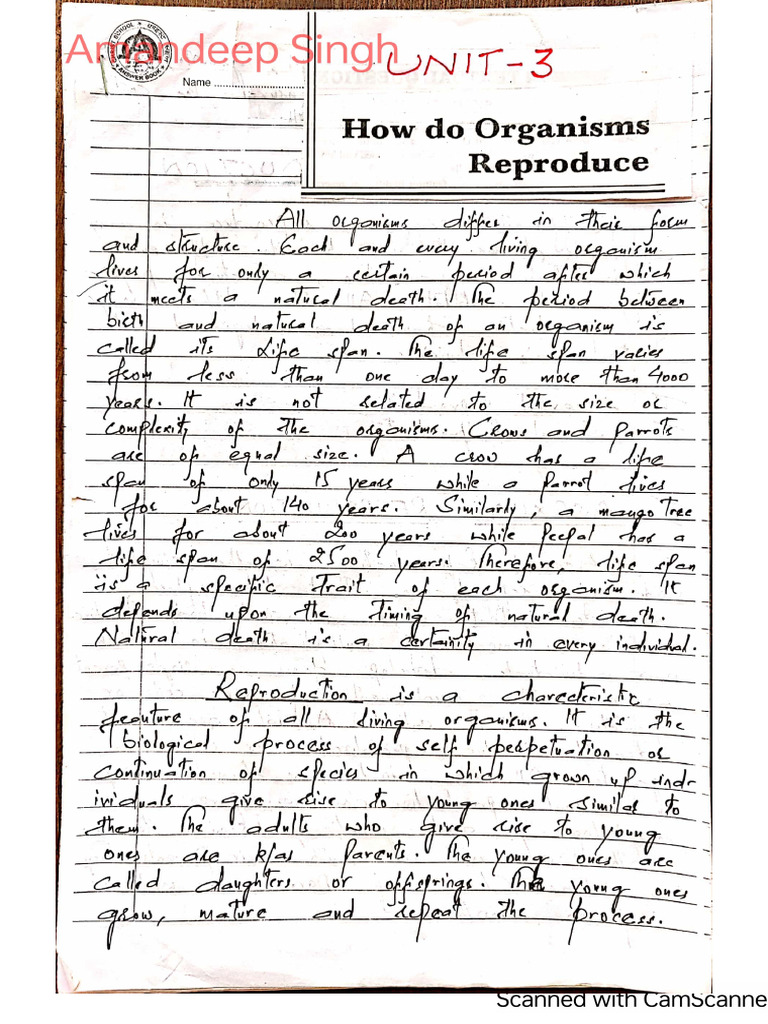 Amandeep Singh
UNIT-3
ANSWER BOOK
Name
How do Organisms
Reproduce
All organisms differ in their form
and structure. Each and every living organism
lives for only a certain period after which
it meets a natural death. The period between
birth and natural death of an organism is
called its life span. The life span varies
from less than one day to more than 4000
years. It is not related to the size or
complexity of the organisms. Crows and Parrots
are of equal size. A crow has a life
span of only 15 years while a Parrot lives
for about 140 years. Similarly, a mango Tree
lives for about 200 years while Peepal has a
life span of 2500 years. Therefore, life span
is a specific Trait of each organism. It
depends upon the Timing of natural death.
Natural death is a certainity in every individual.
Reproduction is a charecteristic
feauture of all living organisms. It is the
biological process of self perpetuation or
Continuation of species in which grown up indi-
ividuals give rise to young ones similar to
them. The adults who give rise to young
ones are k/as Parents. The young ones are
Called daughters or offsprings. The young ones
grow, mature and repeat the process.
Scanned with CamScanne